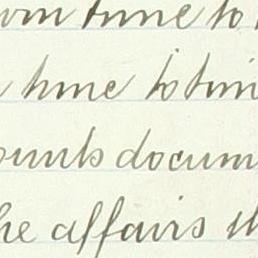 om time to
time to tim
ounts docum
he affairs th